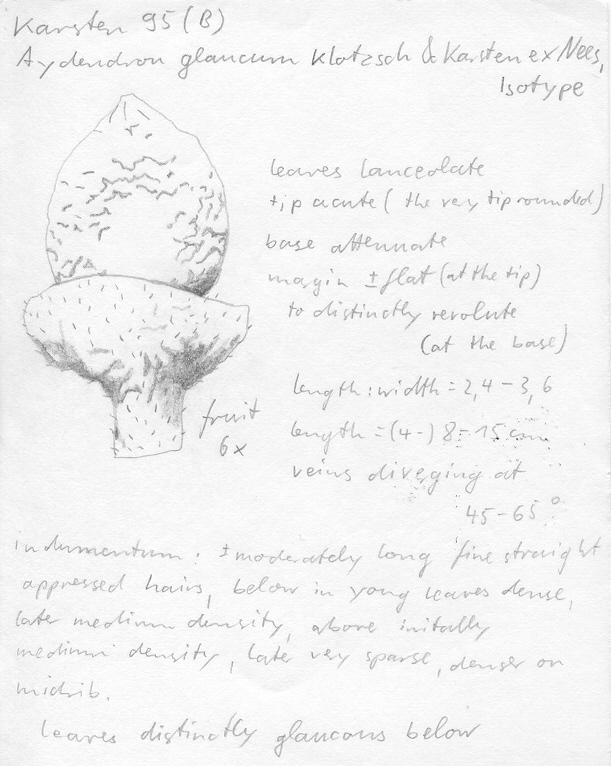 Karsten 95 (B)
Aydendron glaucum Klotzsch & Karsten ex Nees,
Isotype
leaves lanceolate
tip acute (the very tip rounded)
base attenuate
margin ± flat (at the tip)
to distinctly revolute
(at the base)
length : width = 2,4 - 3,6
length = (4-) 8 - 15 cm
veins diverging at
45 - 65°
fruit
6x
indumentum : ± moderately long fine straight
appressed hairs, below in young leaves dense,
later medium density, above initally
medium density, late very sparse, denser on
midrib.
leaves distinctly glaucous below